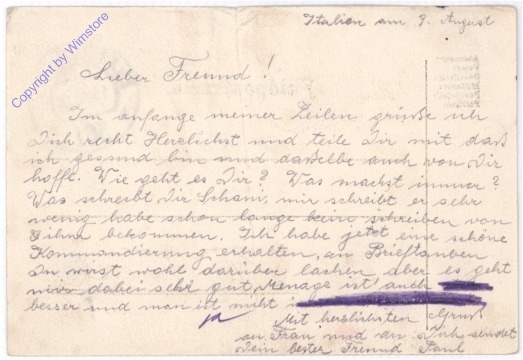 Italien am 9. August
Copyright by Wimstore
Lieber Freund!
Im anfange meiner Zeilen grüße ich
Dich recht Herzlichst und teile Dir mit daß
ich gesund bin und dasselbe auch von Dir
hoffe. Wie geht es Dir? Was machst immer?
Was schreibt Dir Schani, mir schreibt er sehr
wenig habe schon lange kein schreiben von
ihm bekommen. Ich habe jetzt eine schöne
Kommandierung erhalten, an Brieftauben
Du wirst wohl darüber lachen aber es geht
mir dabei sehr gut, Menage ist auch
besser und man ist nicht
Mit herzlichsten Gruß
an Frau und an Dich sendet
Dein bester Freund Paul